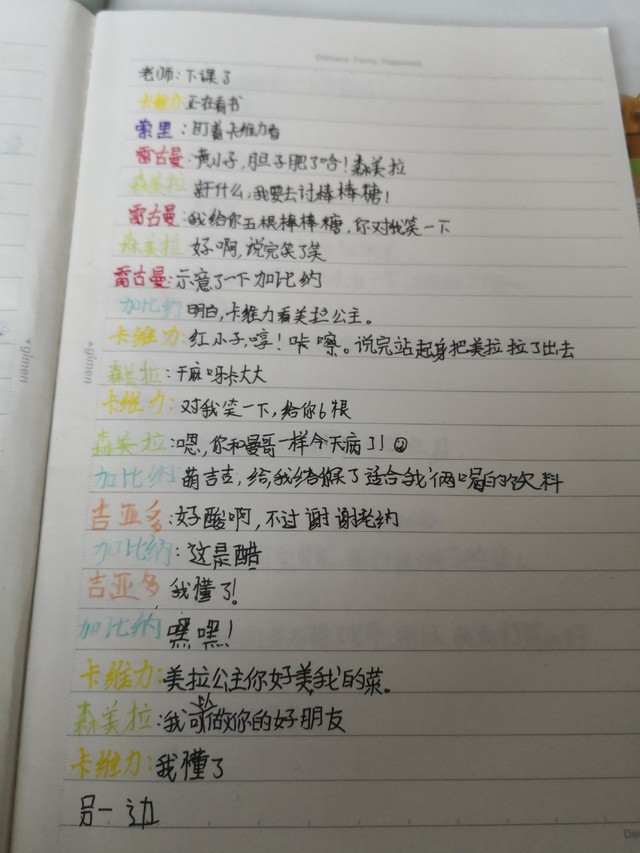 老师：下课了
卡维力：正在看书
索里：盯着卡维力看
雷古曼：黄小子，胆子肥了哈！森美拉
森美拉 干什么，我要去讨棒棒糖！
雷古曼：我给你五根棒棒糖，你对我笑一下
森美拉 好啊，说完笑了笑
雷古曼：示意了一下加比纳
加比纳 明白，卡维力看美拉公主。
卡维力：红小子，哼！咔嚓。说完站起身把美拉拉了出去
森美拉：干麻呀卡大大
卡维力：对我笑一下，给你6根
森美拉：嗯，你和曼哥一样今天病了！
加比纳 萌吉吉，给，我给你泡了适合我俩喝的饮料
吉亚多：好酸啊，不过谢谢老纳
加比纳：这是醋
吉亚多 我懂了！
加比纳 嘿嘿！
卡维力：美拉公主你好美我的菜。
森美拉：我可以做你的好朋友
卡维力：我懂了
另一边
glmen
glmen